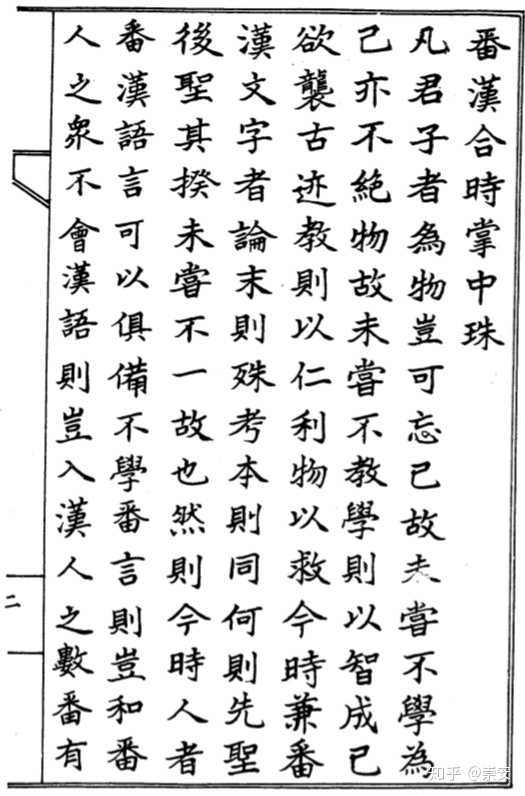 番漢合時掌中珠
凡君子者為物豈可忘己故未嘗不學為
己亦不絶物故未嘗不教學則以智成己
欲襲古迹教則以仁利物以救今時兼番
漢文字者論末則殊考本則同何則先聖
後聖其揆未嘗不一故也然則今時人者
番漢語言可以俱備不學番言則豈和番
人之衆不會漢語則豈入漢人之數番有
二
知乎 @萧安